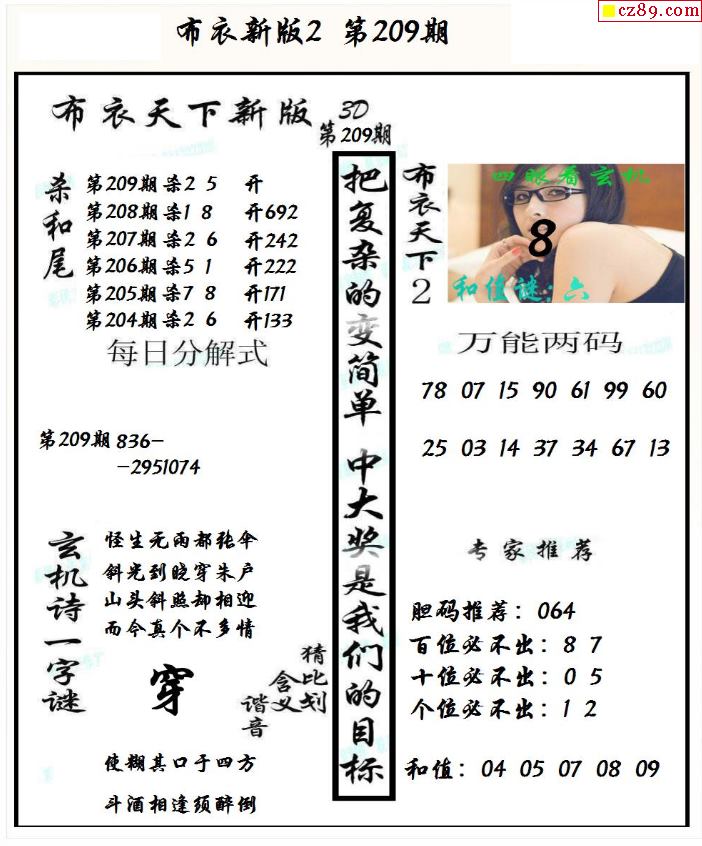 cz89.com
布衣新版2 第209期
布衣天下新版 3D
第209期
杀和尾
第209期 杀2 5 开
第208期 杀1 8 开692
第207期 杀2 6 开242
第206期 杀5 1 开222
第205期 杀7 8 开171
第204期 杀2 6 开133
每日分解式
第209期 836-
-2951074
玄机诗一字谜
怪生无雨都张伞
斜光到晓穿朱户
山头斜照却相迎
而今真个不多情
穿
猜比划
含义
谐音
使糊其口于四方
斗酒相逢须醉倒
把复杂的变简单 中大奖是我们的目标
布衣天下2
四眼看玄机
8
和值谜:六
万能两码
78 07 15 90 61 99 60
25 03 14 37 34 67 13
专家推荐
胆码推荐：064
百位必不出：8 7
十位必不出：0 5
个位必不出：1 2
和值：04 05 07 08 09